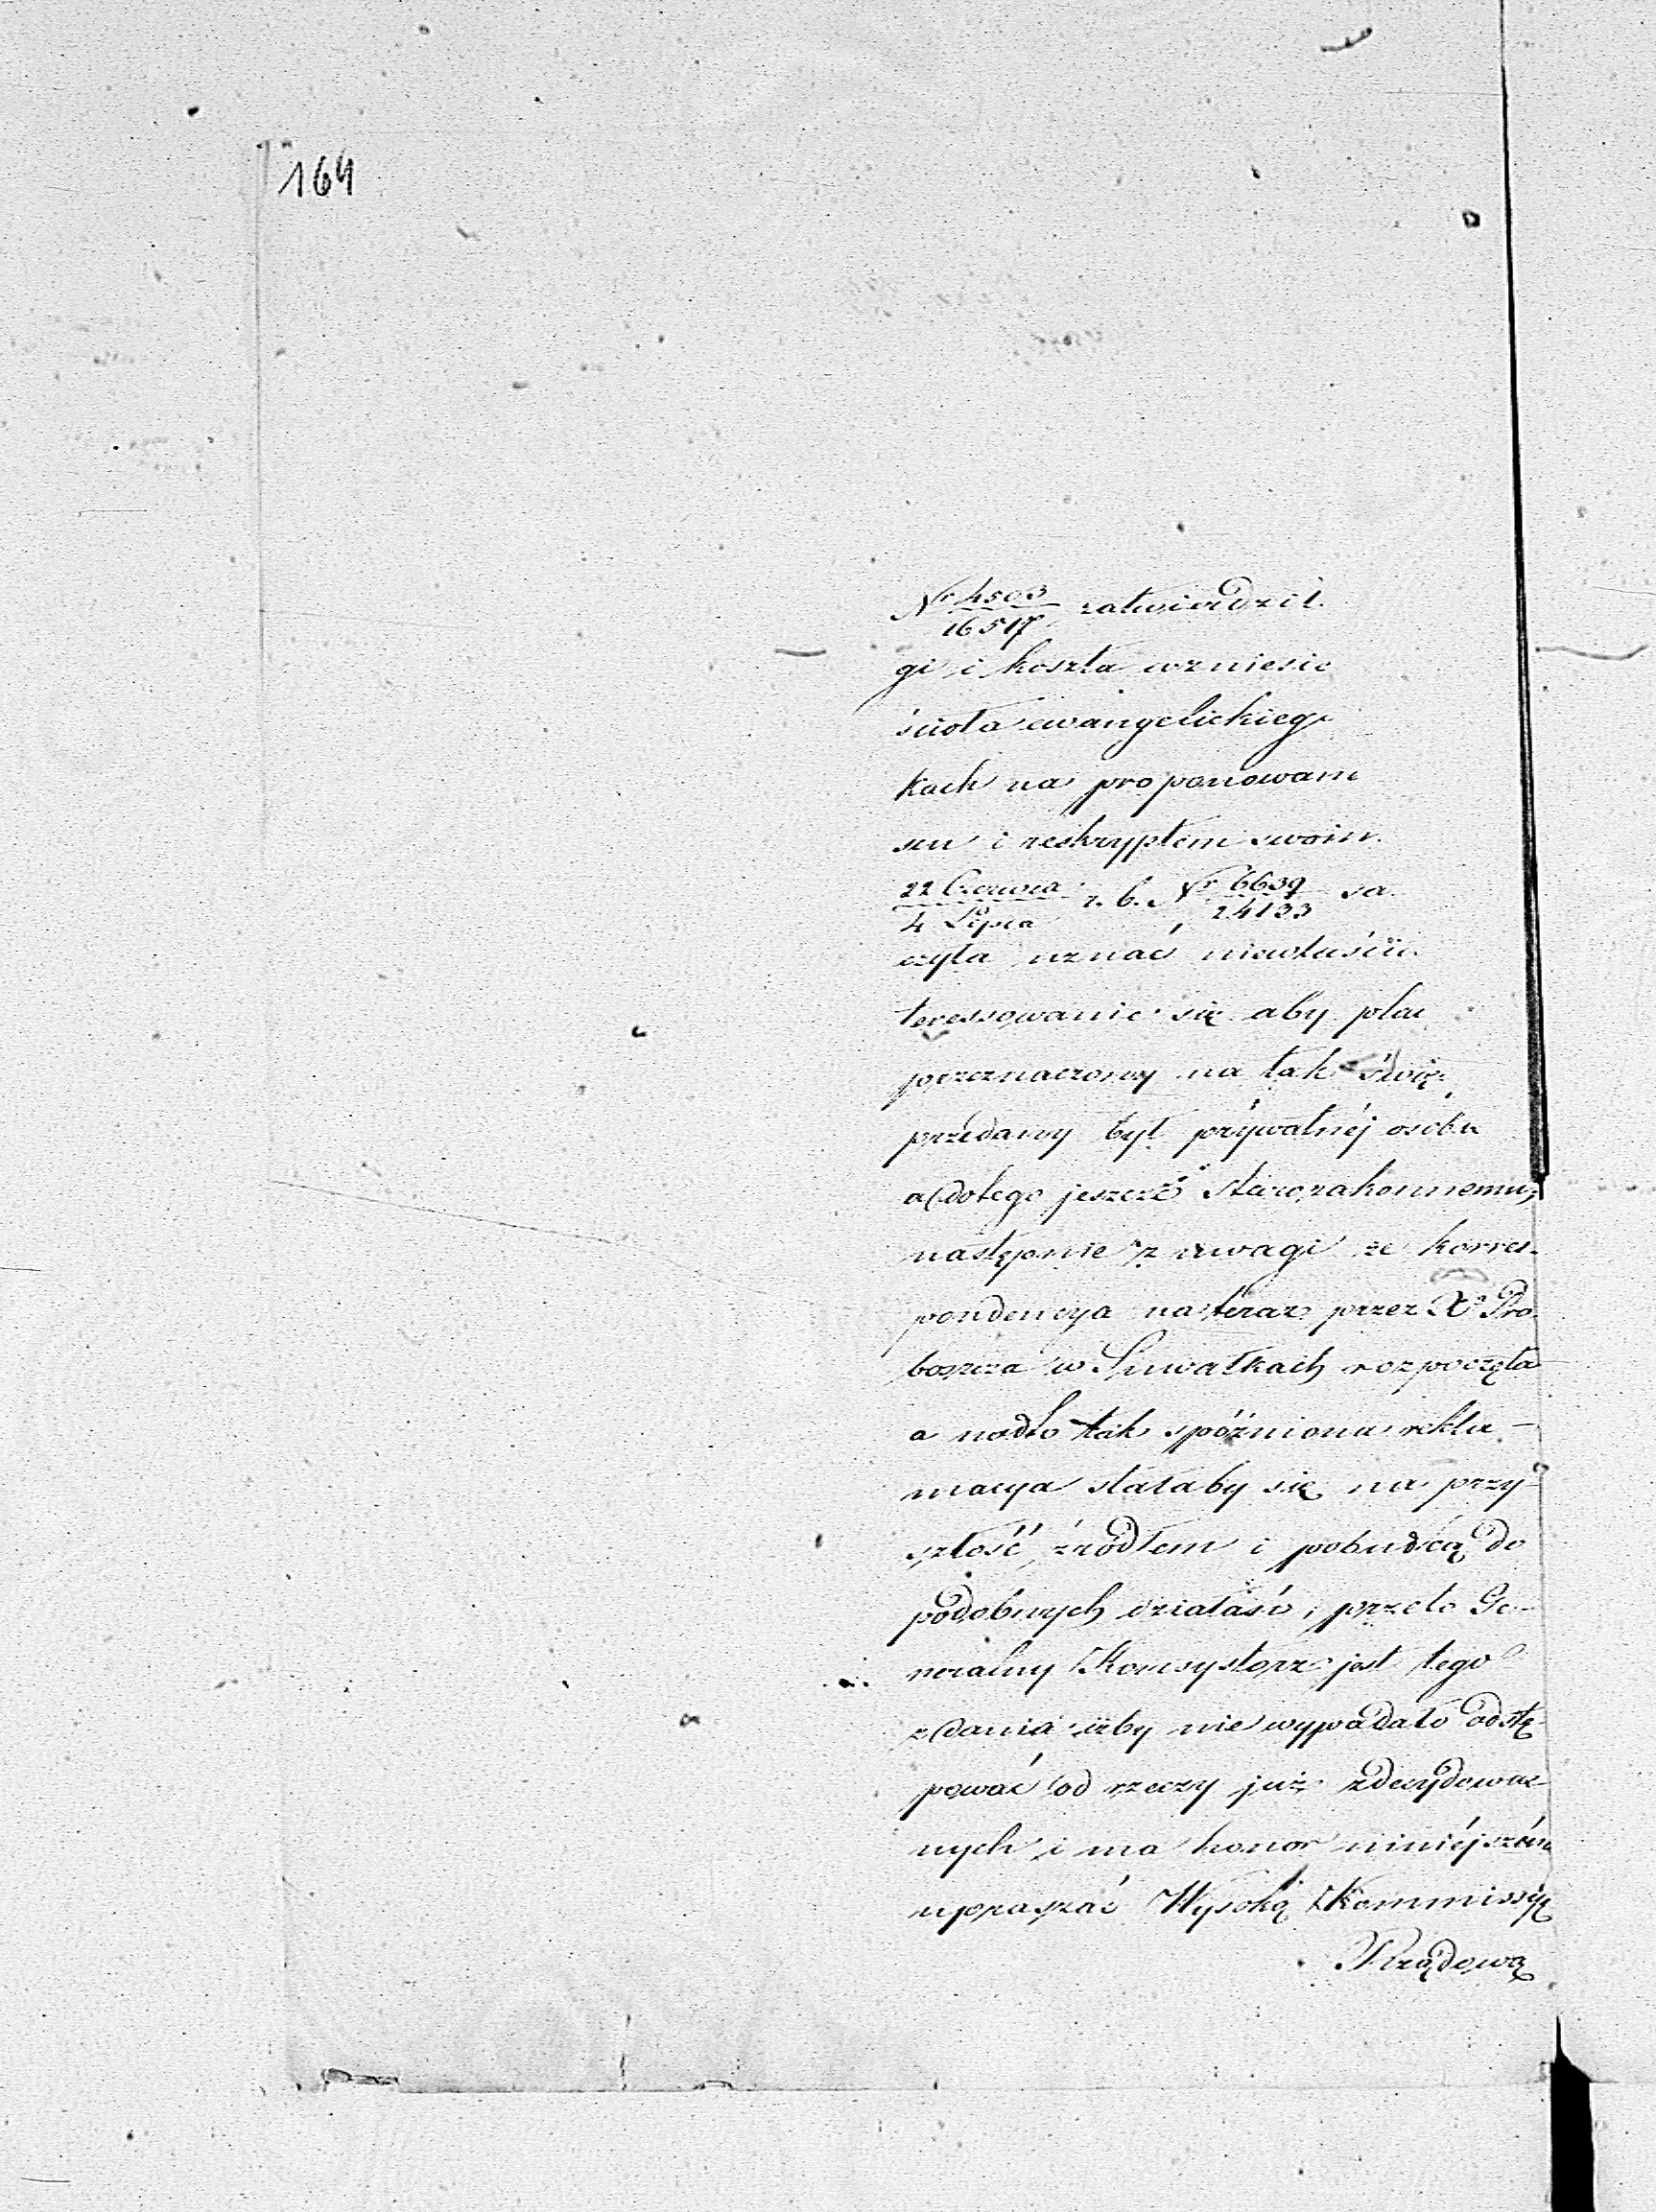 164
Nr 4503/16517 zatwierdził
gi i koszta wzniesie
ścioła ewangelickieg
kach na proponowan
scu i reskryptem swoim
22 Czerwca/4 Lipca r. b. Nr 6639/24133 sa
czyła uznać niewłaściw
teressowanie się aby plac
przeznaczony na tak świę
przedany był prywatnéj osobie
a dotego jeszcze starozakonnemu,
następnie z uwagi że korres-
pondencya na teraz przez Xa Pro-
boszcza w Suwałkach rozpoczęta
a nadto tak spóźniona rekla-
macya stałaby się na przy-
szłość źródłem i pobudką do
podobnych działań, przeto Ge-
neralny Konsystorz jest tego
zdania iżby nie wypadało odstę-
pować od rzeczy już zdecydowa-
nych i ma honor niniéjszém
upraszać Wysoką Kommissyę
Rządową